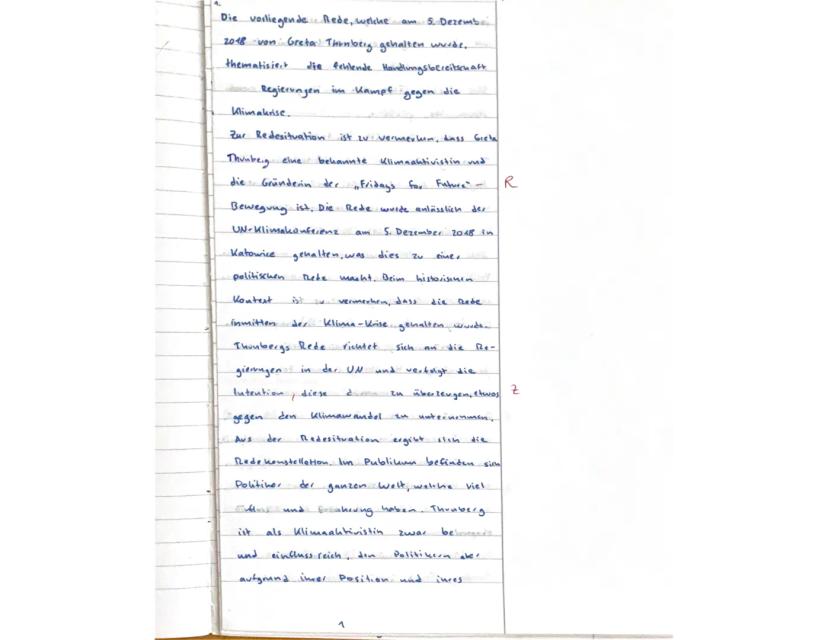 1.
Die vorliegende Rede, welche am 5. Dezemb
2018 von Greta Thunberg gehalten wurde,
thematisiert die fehlende Handlungsbereitschaft
Regierungen im Kampf gegen die
Klimakrise.
Zur Redesituation ist zu vermerken, dass Greta
Thunberg eine bekannte Klimaaktivistin und
die Gründerin der „Fridays for Future"- R
Bewegung ist. Die Rede wurde anlässlich der
UN-Klimakonferenz am 5. Dezember 2018 in
Katowice gehalten, was dies zu einer
politischen Rede macht. Beim historischen
Kontext ist zu vermerken, dass die Rede
inmitten der Klima-Krise gehalten wurde.
Thunbergs Rede richtet sich an die Re-
gierungen in der UN und verfolgt die
Intention, diese zu überzeugen, etwas Z
gegen den Klimawandel zu unternehmen.
Aus der Redesituation ergibt sich die
Redekonstellation. Im Publikum befinden sich
Politiker der ganzen Welt, welche viel
und Erfahrung haben. Thunberg
ist als Klimaaktivistin zwar
und einflussreich, den Politikern aber
aufgrund ihrer Position und ihres
1